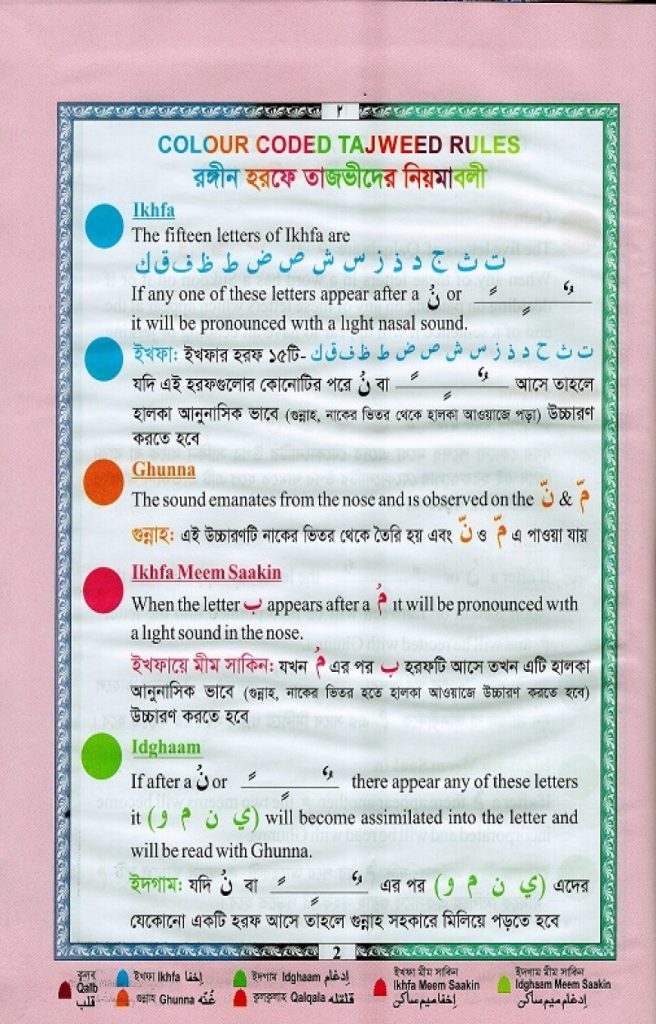 ٢
COLOUR CODED TAJWEED RULES
রঙ্গীন হরফে তাজভীদের নিয়মাবলী
Ikhfa
The fifteen letters of Ikhfa are
ت ث ج د ذ ز س ش ص ض ط ظ ف ق ك
If any one of these letters appear after a نْ or ـًـ ـٍـ ـٌـ
it will be pronounced with a light nasal sound.
ইখফা: ইখফার হরফ ১৫টি- ت ث ج د ذ ز س ش ص ض ط ظ ف ق ك
যদি এই হরফগুলোর কোনোটির পরে نْ বা ـًـ ـٍـ ـٌـ আসে তাহলে
হালকা আনুনাসিক ভাবে (গুন্নাহ, নাকের ভিতর থেকে হালকা আওয়াজে পড়া) উচ্চারণ
করতে হবে
Ghunna
The sound emanates from the nose and is observed on the نّ & مّ
গুন্নাহ: এই উচ্চারণটি নাকের ভিতর থেকে তৈরি হয় এবং نّ ও مّ এ পাওয়া যায়
Ikhfa Meem Saakin
When the letter ب appears after a مْ it will be pronounced with
a light sound in the nose.
ইখফায়ে মীম সাকিন: যখন مْ এর পর ب হরফটি আসে তখন এটি হালকা
আনুনাসিক ভাবে (গুন্নাহ, নাকের ভিতর হতে হালকা আওয়াজে উচ্চারণ করতে হবে)
উচ্চারণ করতে হবে
Idghaam
If after a نْ or ـًـ ـٍـ ـٌـ there appear any of these letters
it (ي ن م و) will become assimilated into the letter and
will be read with Ghunna.
ইদগাম: যদি نْ বা ـًـ ـٍـ ـٌـ এর পর (ي ن م و) এদের
যেকোনো একটি হরফ আসে তাহলে গুন্নাহ সহকারে মিলিয়ে পড়তে হবে
2
ক্বলব Qalb قلب
ইখফা Ikhfa إخفا
গুন্নাহ Ghunna غُنّه
ইদগাম Idghaam إدغام
ক্বলক্বলাহ Qalqala قلقله
ইখফা মীম সাকিন
Ikhfa Meem Saakin
إخفا ميم ساكن
ইদগাম মীম সাকিন
Idghaam Meem Saakin
إدغام ميم ساكن